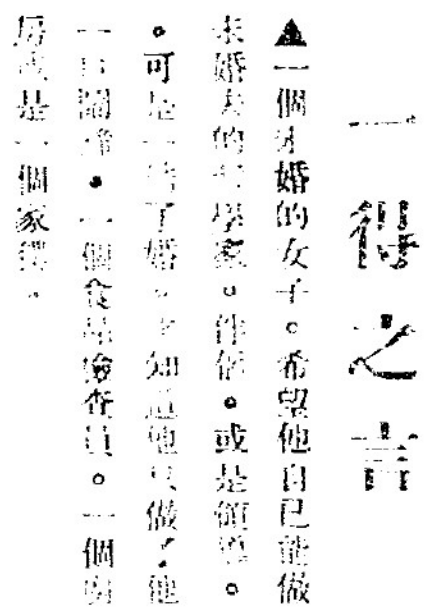 一得之言
▲一個未婚的女子。希望他自己能做
未婚夫的哲學家。伴侶。或是領導。
。可是一結了婚。才知道他只做了他
一個。一個食品檢查員。一個廚
房或是一個家。